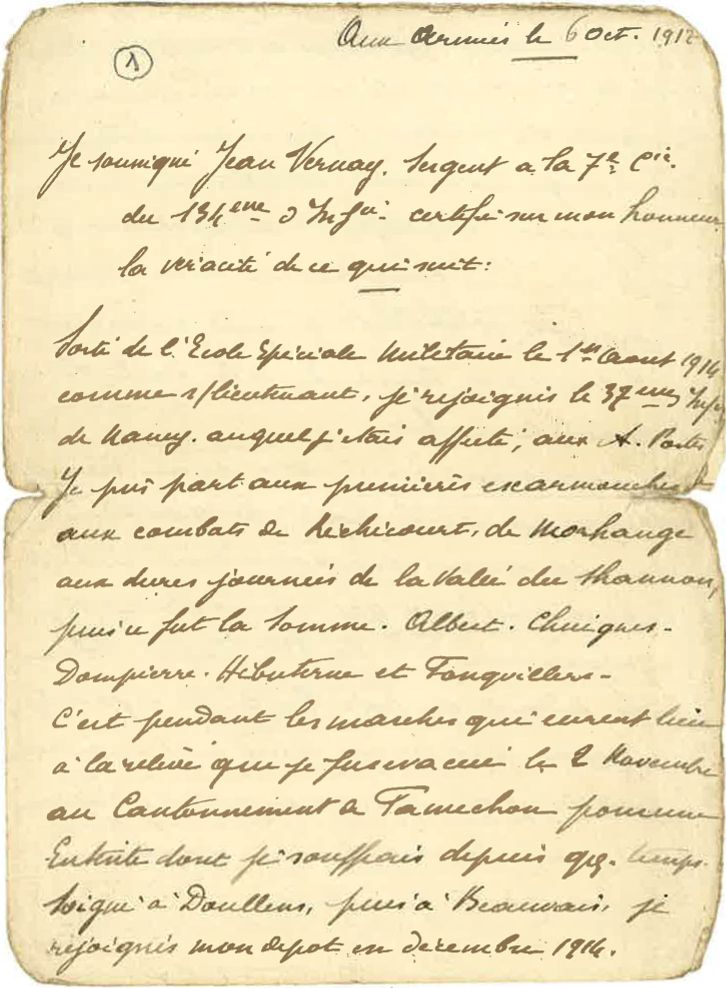 Aux Armées le 6 Oct. 191
1
Je soussigné Jean Vernay. Sergent a la 7e Cie.
du 134eme d'Infie certifie sur mon honneur
la veracité de ce qui suit:
Sorti de l'Ecole Spéciale Militaire le 1er Aout 1914
comme s/lieutenant, je rejoignis le 37eme Infie
de Nancy. auquel j'étais affecté, aux A. Postes
Je pris part aux premières escarmouches
aux combats de Rechicourt, de Morhange
aux dures journées de la Vallée du Shannon,
puis ce fut la Somme. Albert. Chuignes-
Dompierre. Hébuterne et Fonquillers-
C'est pendant les marches qui eurent lieu
à la relève que je fus evacué le 2 Novembre
au Cantonnement de Famechon pour une
Entérite dont je souffrais depuis qq. temps.
Soigné à Doullens, puis à Beauvais, je
rejoignis mon depot en décembre 1914.